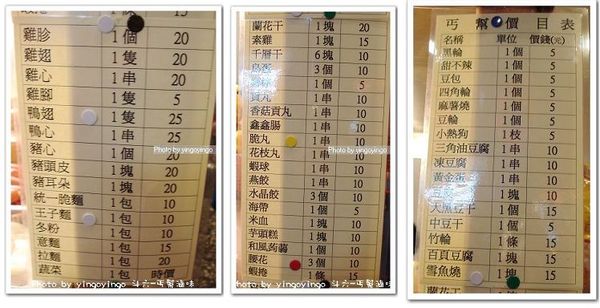 雞胗 1個 20
雞翅 1隻 20
雞心 1串 20
雞腳 1隻 5
鴨翅 1隻 25
鴨心 1串 25
豬心 1個 20
豬頭皮 1塊 20
豬耳朵 1塊 20
統一脆麵 1包 10
王子麵 1包 10
冬粉 1包 10
意麵 1包 15
拉麵 1包 20
蔬菜 1包 時價
Photo by yingoyingo
Photo by yingoyingo 斗六-丐幫滷味
蘭花干 1塊 20
素雞 1塊 15
千層干 6塊 10
鳥蛋 3個 10
1個 5
貢丸 1串 10
香菇貢丸 1串 10
鑫鑫腸 1串 10
脆丸 1串 10
花枝丸 1串 10
蝦球 1串 10
燕餃 1串 10
水晶餃 3個 10
海帶 1個 5
米血 1塊 10
芋頭糕 1塊 10
和風蒟蒻 1個 10
腰花 3個 10
蝦捲 1條 15
Photo by yingoyingo
Photo by yingoyingo 斗六-丐幫滷味
丐幫價目表
名稱 單位 價錢(元)
黑輪 1個 5
甜不辣 1個 5
豆包 1個 5
四角輪 1個 5
麻薯燒 1個 5
豆輪 1個 5
小熱狗 1枝 5
三角油豆腐 1串 10
凍豆腐 1串 10
黃金蛋 1串 10
豆腐 1塊 10
大黑豆干 1個 15
中豆干 1個 5
竹輪 1條 15
百頁豆腐 1塊 15
雪魚燒 1塊 15
蘭花干 1塊
Photo by yingoyingo
Photo by yingoyingo 斗六-丐幫滷味